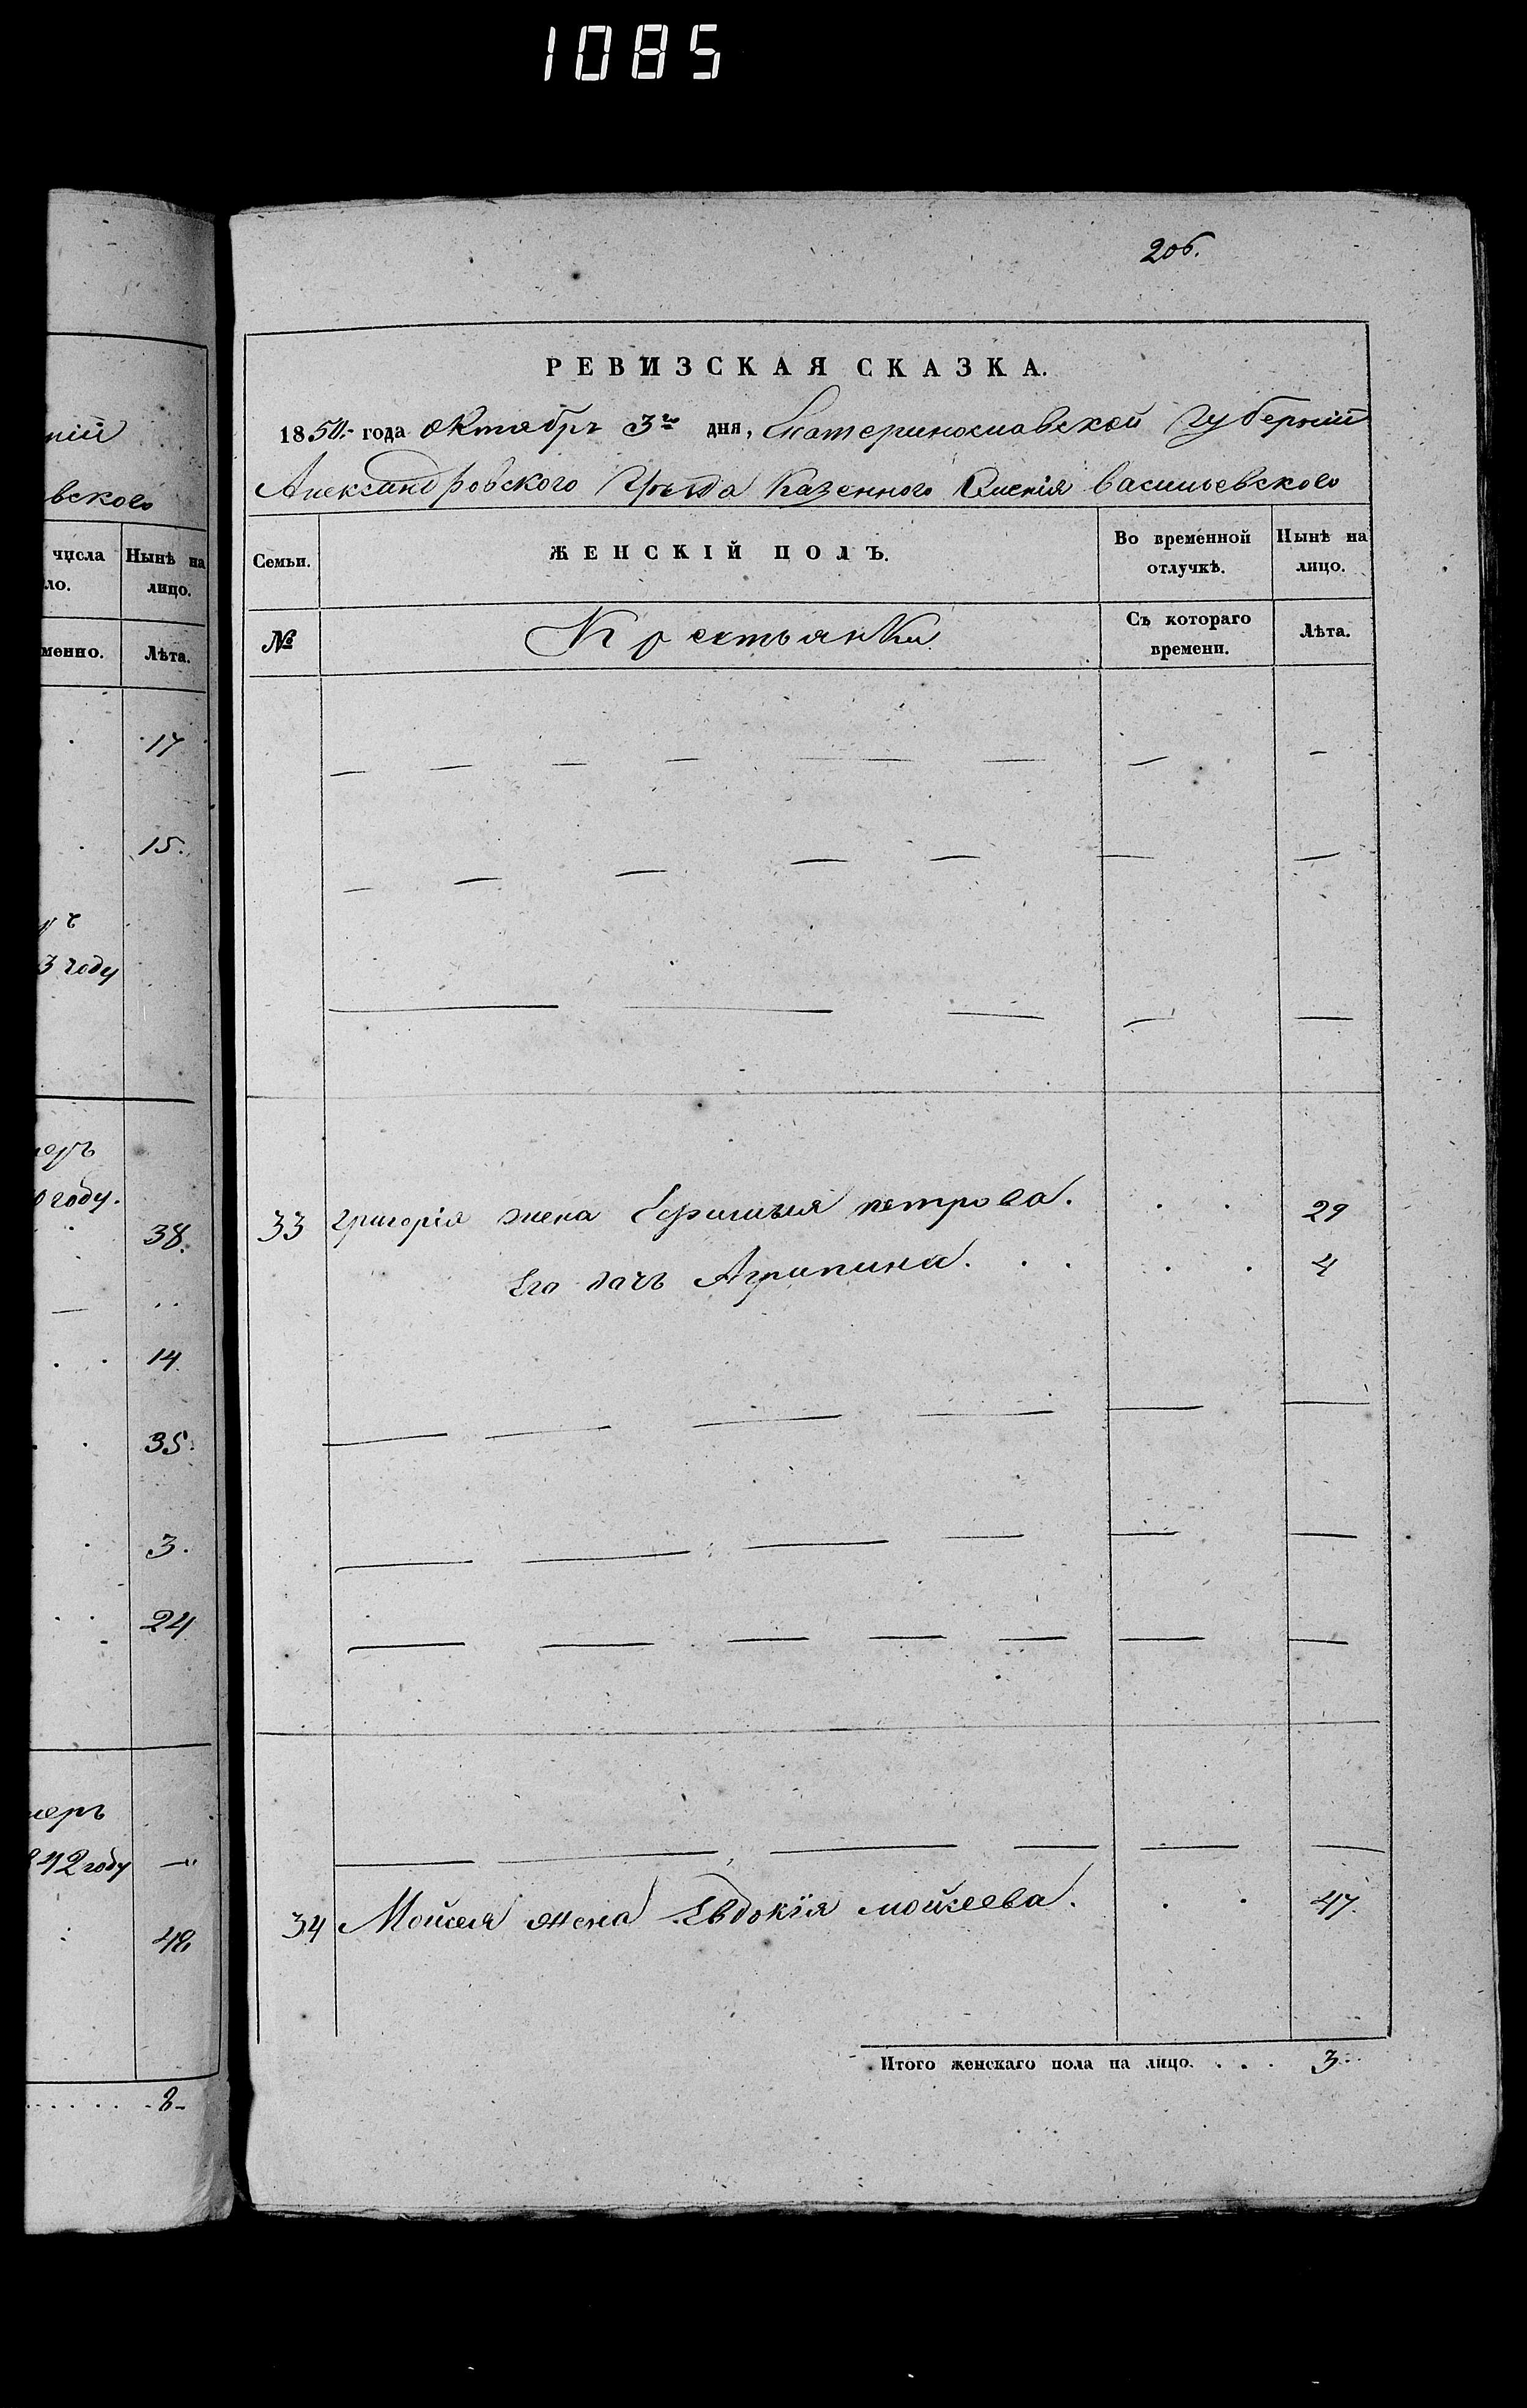 1085
ній
вского
числа Нынѣ на
ло. лицо.
менно. Лѣта.
17
15.
3 году
меръ
0 году.
38.
14
35.
3.
24
меръ
842 году
48
8
206.
РЕВИЗСКАЯ СКАЗКА.
1850. года октября 3го дня, Екатеринославской Губерніи
Александровского Уѣзда Казенного Имѣнія васильевского
Семьи. ЖЕНСКІЙ ПОЛЪ. Во временной отлучкѣ. Нынѣ на лицо.
№ Крестьянки Съ котораго времени. Лѣта.
33 Григорія жена Ефимія петрова. 29
Его дочь Агрипина. 4
34 Мойсея жена Евдокія мойсеева. 47.
Итого женскаго пола на лицо. . . . 3